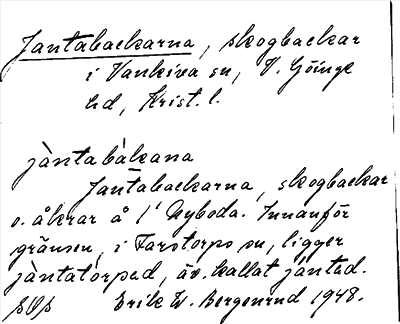 Jantabackarna, skogbackar
i Vankiva sn, V. Göinge
hd, Krist. l.
jàntabàkana
Jantabackarna, skogbackar
o. åkrar å 1' Nyboda. Innanför
gränsen, i Farstorps sn, ligger
jàntatòrped, äv. kallat jànted.
Erik W. Bergenrud 1948.